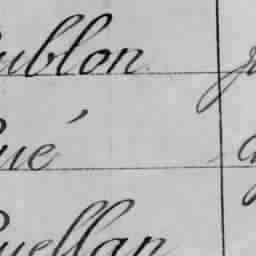 ublon
ué
uellan